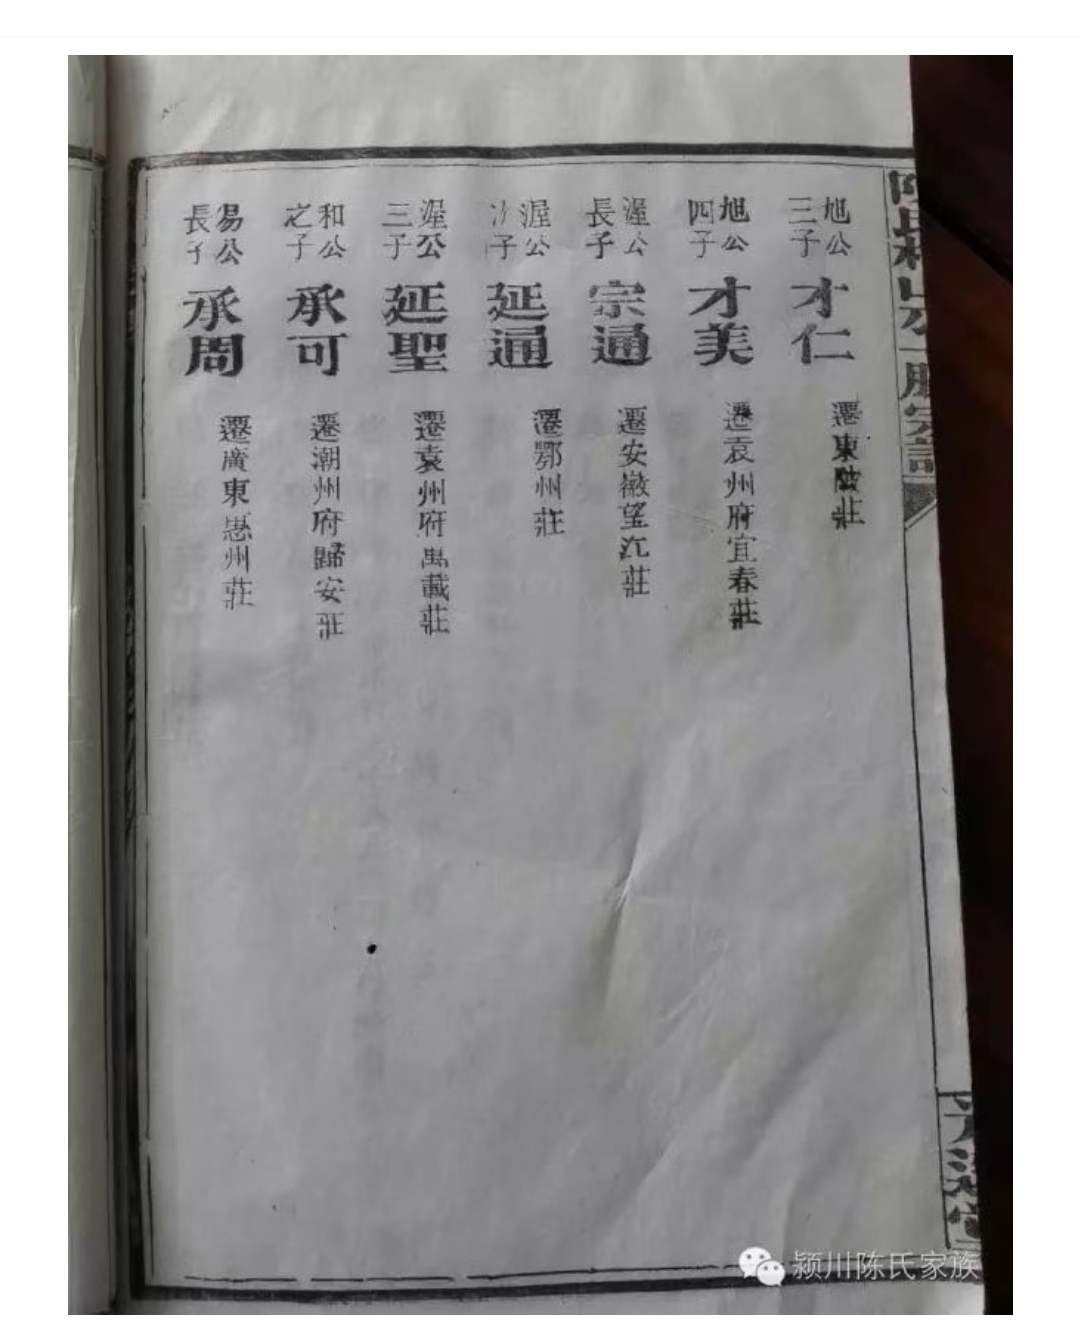 旭公三子 才仁 遷東陂莊
旭公四子 才美 遷袁州府宜春莊
渥公長子 宗通 遷安徽望江莊
渥公次子 延通 遷鄂州莊
渥公三子 延聖 遷袁州府萬載莊
和公之子 承可 遷潮州府歸安莊
易公長子 承周 遷廣東惠州莊
颍川陈氏家族